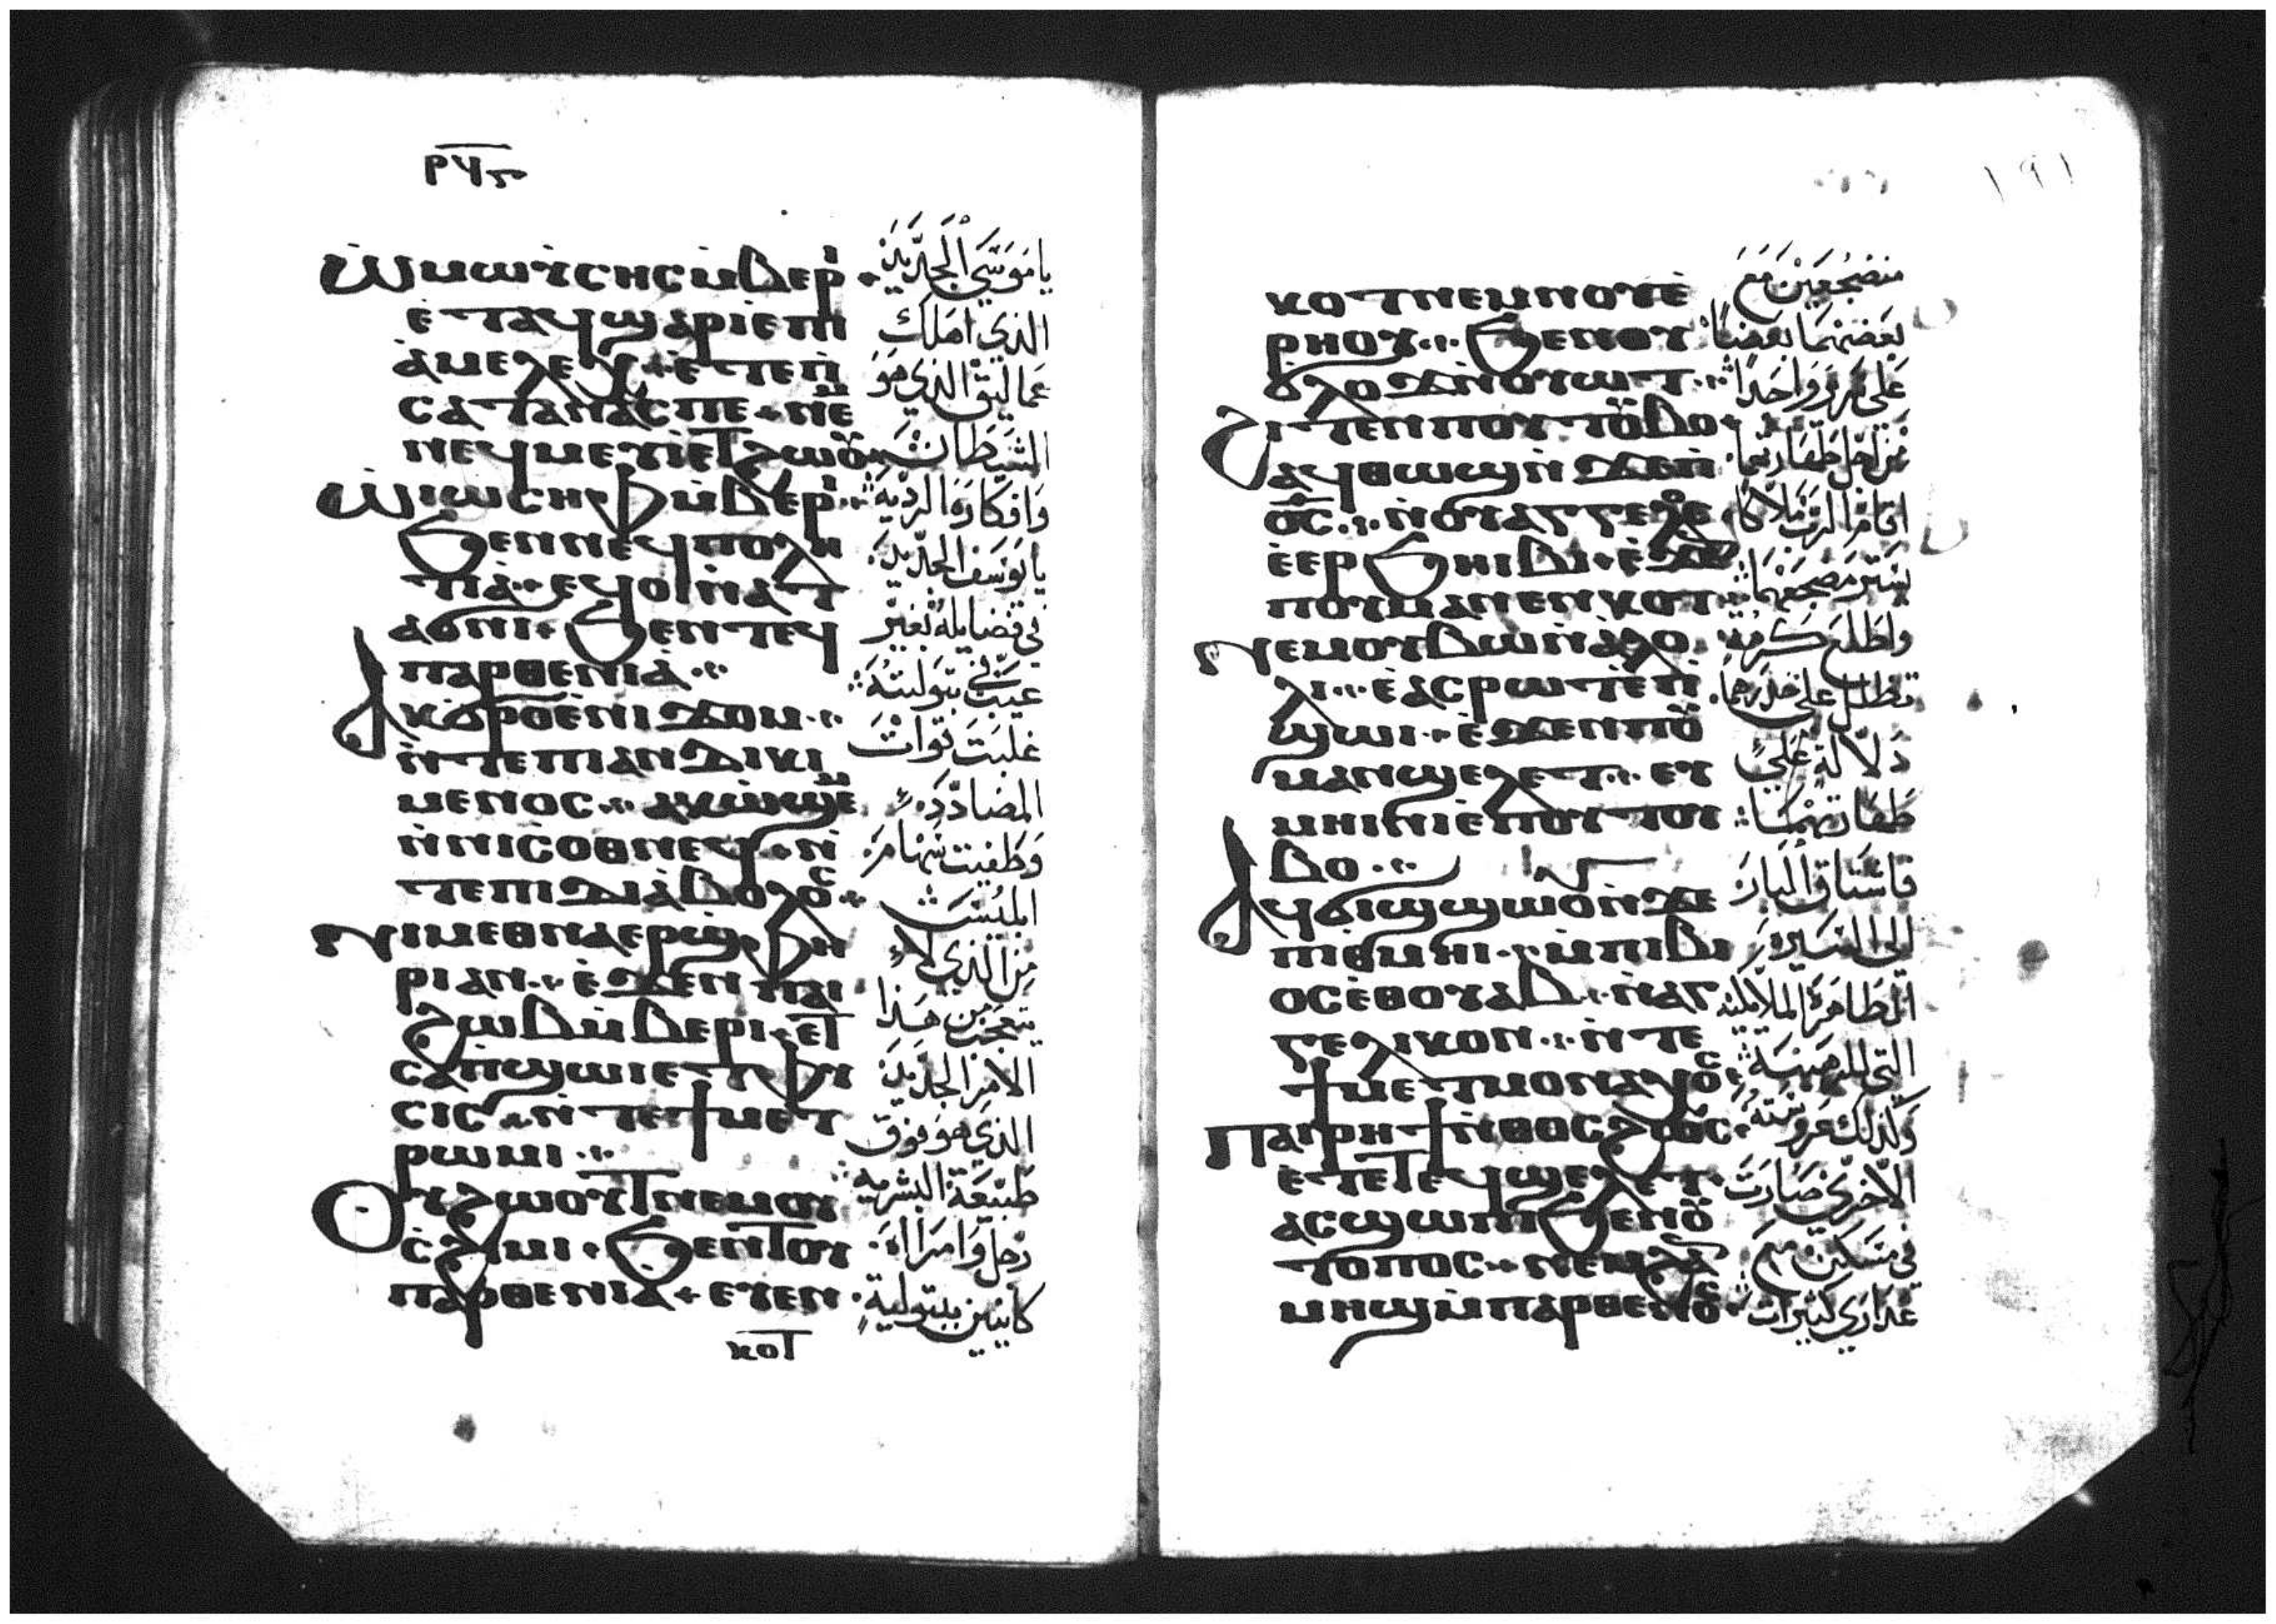 ⲣϥⲋ
Ⲱⲙⲱⲩⲥⲏⲥⲙ̀ⲃⲉⲣⲓ
ⲉ̀ⲧⲁϥϣⲁⲣⲓⲉⲡⲓ
ⲁ̀ⲙⲉⲗⲉⲕ·ⲉ̀ⲧⲉⲡ̀
ⲥⲁⲧⲁⲛⲁⲥⲡⲉ·ⲛⲉⲙ
ⲛⲉϥⲙⲉⲩⲓ̀ⲉⲧϩⲱⲟⲩ
Ⲱⲓⲱⲥⲏⲫⲙ̀ⲃⲉⲣⲓ
ϧⲉⲛⲛⲉϥⲡⲟⲗⲏ
ⲧⲓⲁ̀·ⲉϥⲟⲓⲛ̀ⲁⲧ
ⲁϭⲛⲓ·ϧⲉⲛⲧⲉϥ
ⲡⲁⲣⲑⲉⲛⲓⲁ̀
Ⲁⲕϭⲣⲟⲉ̀ⲛⲓϫⲟⲙ
ⲛ̀ⲧⲉⲡⲓⲁⲛⲇⲓⲕⲓ
ⲙⲉⲛⲟⲥ·ⲁⲕⲱ̀ϣⲉⲙ
ⲛ̀ⲛⲓⲥⲟⲑⲛⲉϥ·ⲛ̀
ⲧⲉⲡⲓⲇⲓⲁ̀ⲃⲟⲗⲟⲥ
Ⲛⲓⲙⲉⲑⲛⲁⲉⲣϣⲫⲏ
ⲣⲓⲁⲛ·ⲉ̀ϫⲉⲛⲡⲁⲓ
ϩⲱⲃⲙ̀ⲃⲉⲣⲓ·ⲉⲧ
ⲥⲁⲡ̀ϣⲱⲓⲉ̀ⲧⲫⲩ
ⲥⲓⲥ·ⲛ̀ⲧⲉϯⲙⲉⲧ
ⲣⲱⲙⲓ
Ⲟⲩϩⲱⲟⲩⲧⲛⲉⲙⲟⲩ
ⲥ̀ϩⲓⲙⲓ·ϧⲉⲛⲧⲟⲩ
ⲡⲁⲣⲑⲉⲛⲓⲁ·ⲉⲩⲉⲛ
ⲕⲟⲧ
يا موسي الجديد
الذي اهلك
عماليق الذي هو
الشيطان
وافكاره الرديه
يا يوسف الجديد
في فضايله بغير
عيب في بتوليته
غلبت قوات
المضادد
وطفيت سهام
ابليس
من الذي لا
يتعجب من هذا
الامر الجديد
الذي هو فوق
طبيعة البشريه
رجل وامراه
كاينين ببتولية
١٩١
ⲕⲟⲧⲛⲉⲙⲛⲟⲩⲉ̀
ⲣⲏⲟⲩ·ϧⲉⲛⲟⲩ
ϭⲗⲟϫⲛ̀ⲟⲩⲱⲧ
ϩⲓⲧⲉⲛⲡⲟⲩⲧⲟⲩⲃⲟ
ⲁϥⲑⲱϣⲛ̀ϫⲉⲡ̀
ⲟ̅ⲥ̅·ⲛ̀ⲟⲩⲁⲅⲅⲉⲗⲟⲥ
ⲉ̀ⲉⲣϧⲏⲓⲃⲓ·ⲉ̀ϫⲉⲛ
ⲡⲟⲩⲙⲁⲛⲉⲛⲕⲟⲧ
Ⲛⲉⲙⲟⲩⲃⲱⲛ̀ⲁ̀ⲗⲟ
ⲗⲓ·ⲉ̀ⲁⲥⲣⲱⲧⲉ̀ⲡ̀
ϣⲱⲓ·ⲉ̀ϫⲉⲛⲡⲟⲩ
ⲙⲁⲛϣⲉⲗⲉⲧ·ⲉⲩ
ⲙⲏⲓⲛⲓⲉ̀ⲡⲟⲩⲧⲟⲩ
ⲃⲟ
Ⲁϥϭⲓϣϣⲱⲟⲩⲛ̀ϫⲉ
ⲡⲓⲑⲙⲏⲓ·ⲙ̀ⲡⲓⲃⲓ
ⲟⲥⲉ̀ⲑⲟⲩⲁⲃ·ⲛ̀ⲁⲅ
ⲅⲉⲗⲓⲕⲟⲛ·ⲛ̀ⲧⲉ
ϯⲙⲉⲧⲙⲟⲛⲁⲭⲟⲥ
Ⲡⲁⲓⲣⲏϯⲛ̀ⲑⲟⲥϩⲱⲥ
ⲉ̀ⲧⲉⲧⲉϥϣⲉⲗⲉⲧ
ⲁⲥϣⲱⲡⲓϧⲉⲛⲟⲩ
ⲧⲟⲡⲟⲥ·ⲛⲉⲙϩⲁⲛ
ⲙⲏϣⲙ̀ⲡⲁⲣⲑⲉⲛⲟⲥ
منضجعين مع
بعضهما بعضاً
على سرير واحداً
من اجل طهارتهما
اقام الرب ملاكا
يستر مضجعهما
واطلع كرمة
تظلل على خدرهما
دلالة على
طهارتهما
فاشتاق البار
الى السيره
الطاهرة الملايكيه
التي للرهبنيه
وكذلك عروسته
الاخرى صارت
في مسكن مع
عذارى كثيرات